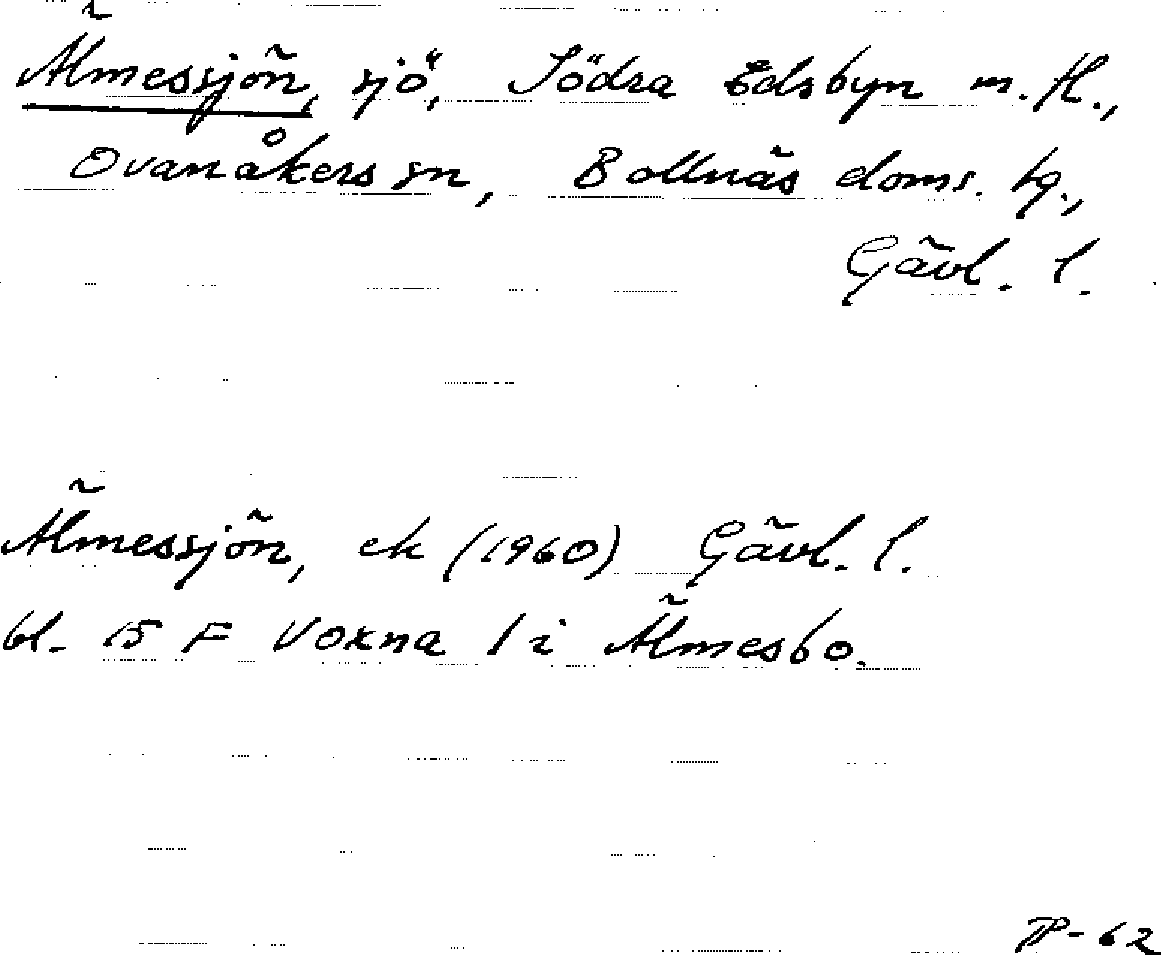 Älmessjön, sjö, Södra Edsbyn m. fl.,
Ovanåkers sn, Bollnäs doms. hg.,
Gävl. l.
Älmessjön, ek (1960) Gävl. l.
bl. 15 F Voxna / i Älmesbo.
TP-62